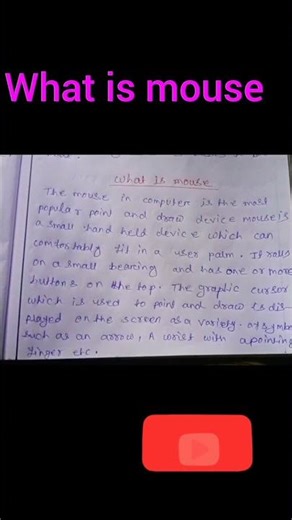 What is mouse
What Is mouse
The mouse in computer is the most
popular point and draw device mouse is
a small hand held device which can
comfortably fit in a user palm. It rolls
on a small bearing and has one or more
buttons on the top. The graphic cursor
which is used to point and draw is dis-
played on the screen as a variety. of symbo
such as an arrow, A wrist with a pointing
finger etc.